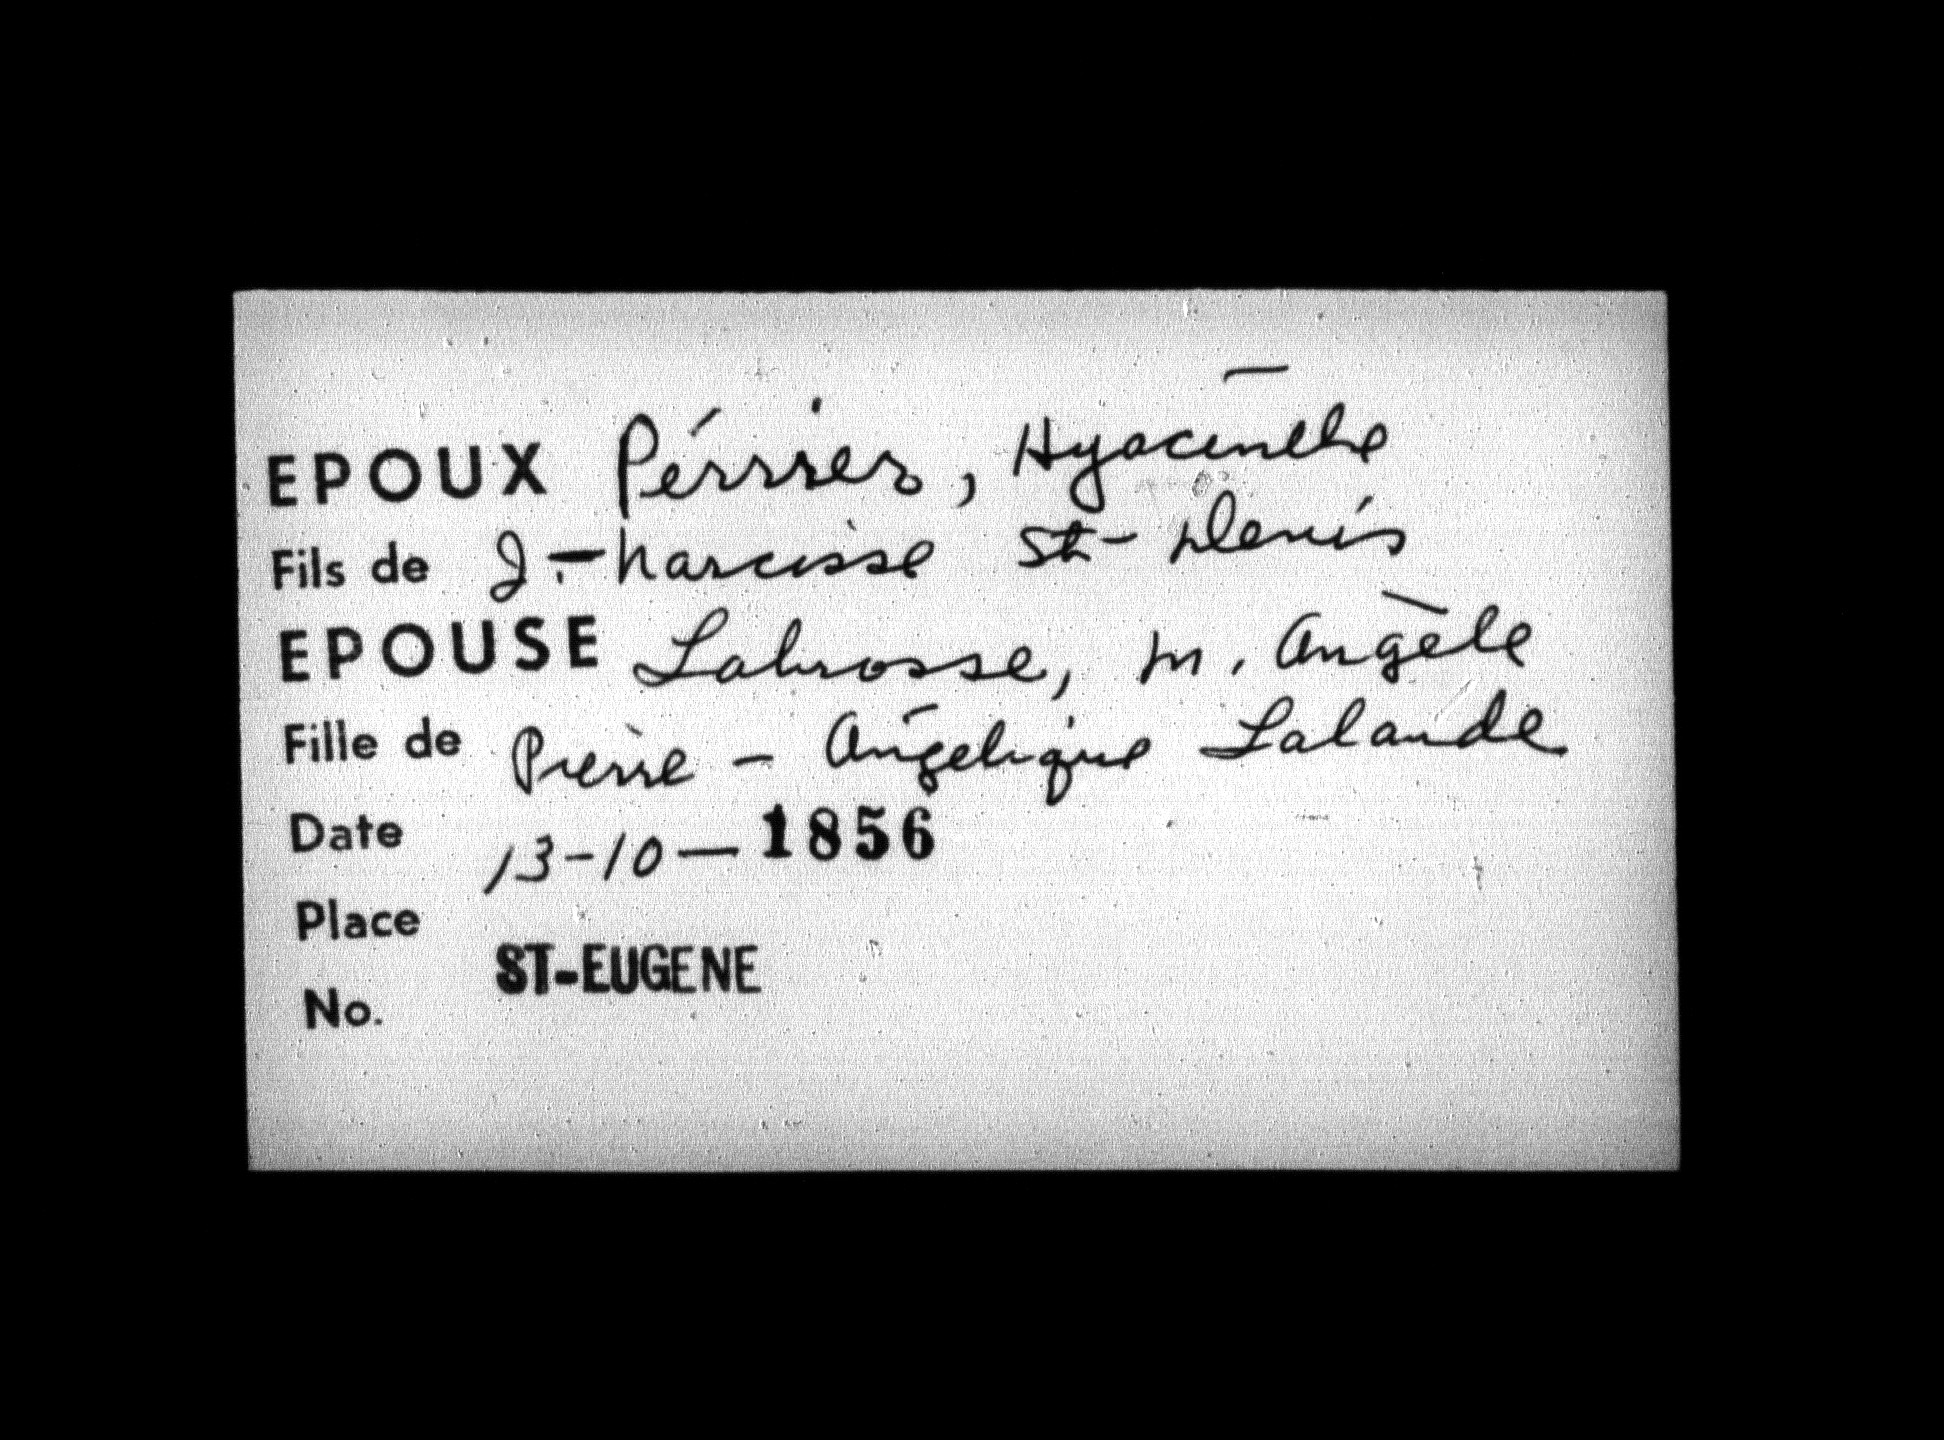 EPOUX Périer, Hyacinthe
Fils de J.-Narcisse St-Denis
EPOUSE Labrosse, M. Angèle
Fille de Pierre - Angélique Lalande
Date 13-10-1856
Place ST-EUGENE
No.